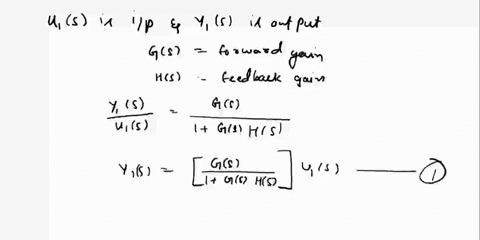 U₁(s) is i/p & Y₁(s) is output
G(s) = forward gain
H(s) - feedback gain
Y₁(s) / U₁(s) = G(s) / 1 + G(s) H(s)
Y₁(s) = [ G(s) / 1 + G(s) H(s) ] U₁(s) —— ①